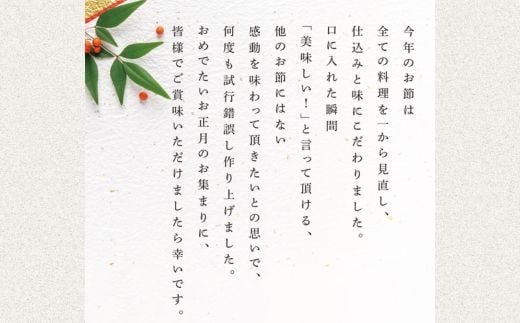 今年のお節は
全ての料理を一から見直し、
仕込みと味にこだわりました。
口に入れた瞬間
「美味しい！」と言って頂ける、
他のお節にはない
感動を味わって頂きたいとの思いで、
何度も試行錯誤し作り上げました。
おめでたいお正月のお集まりに、
皆様でご賞味いただけましたら幸いです。